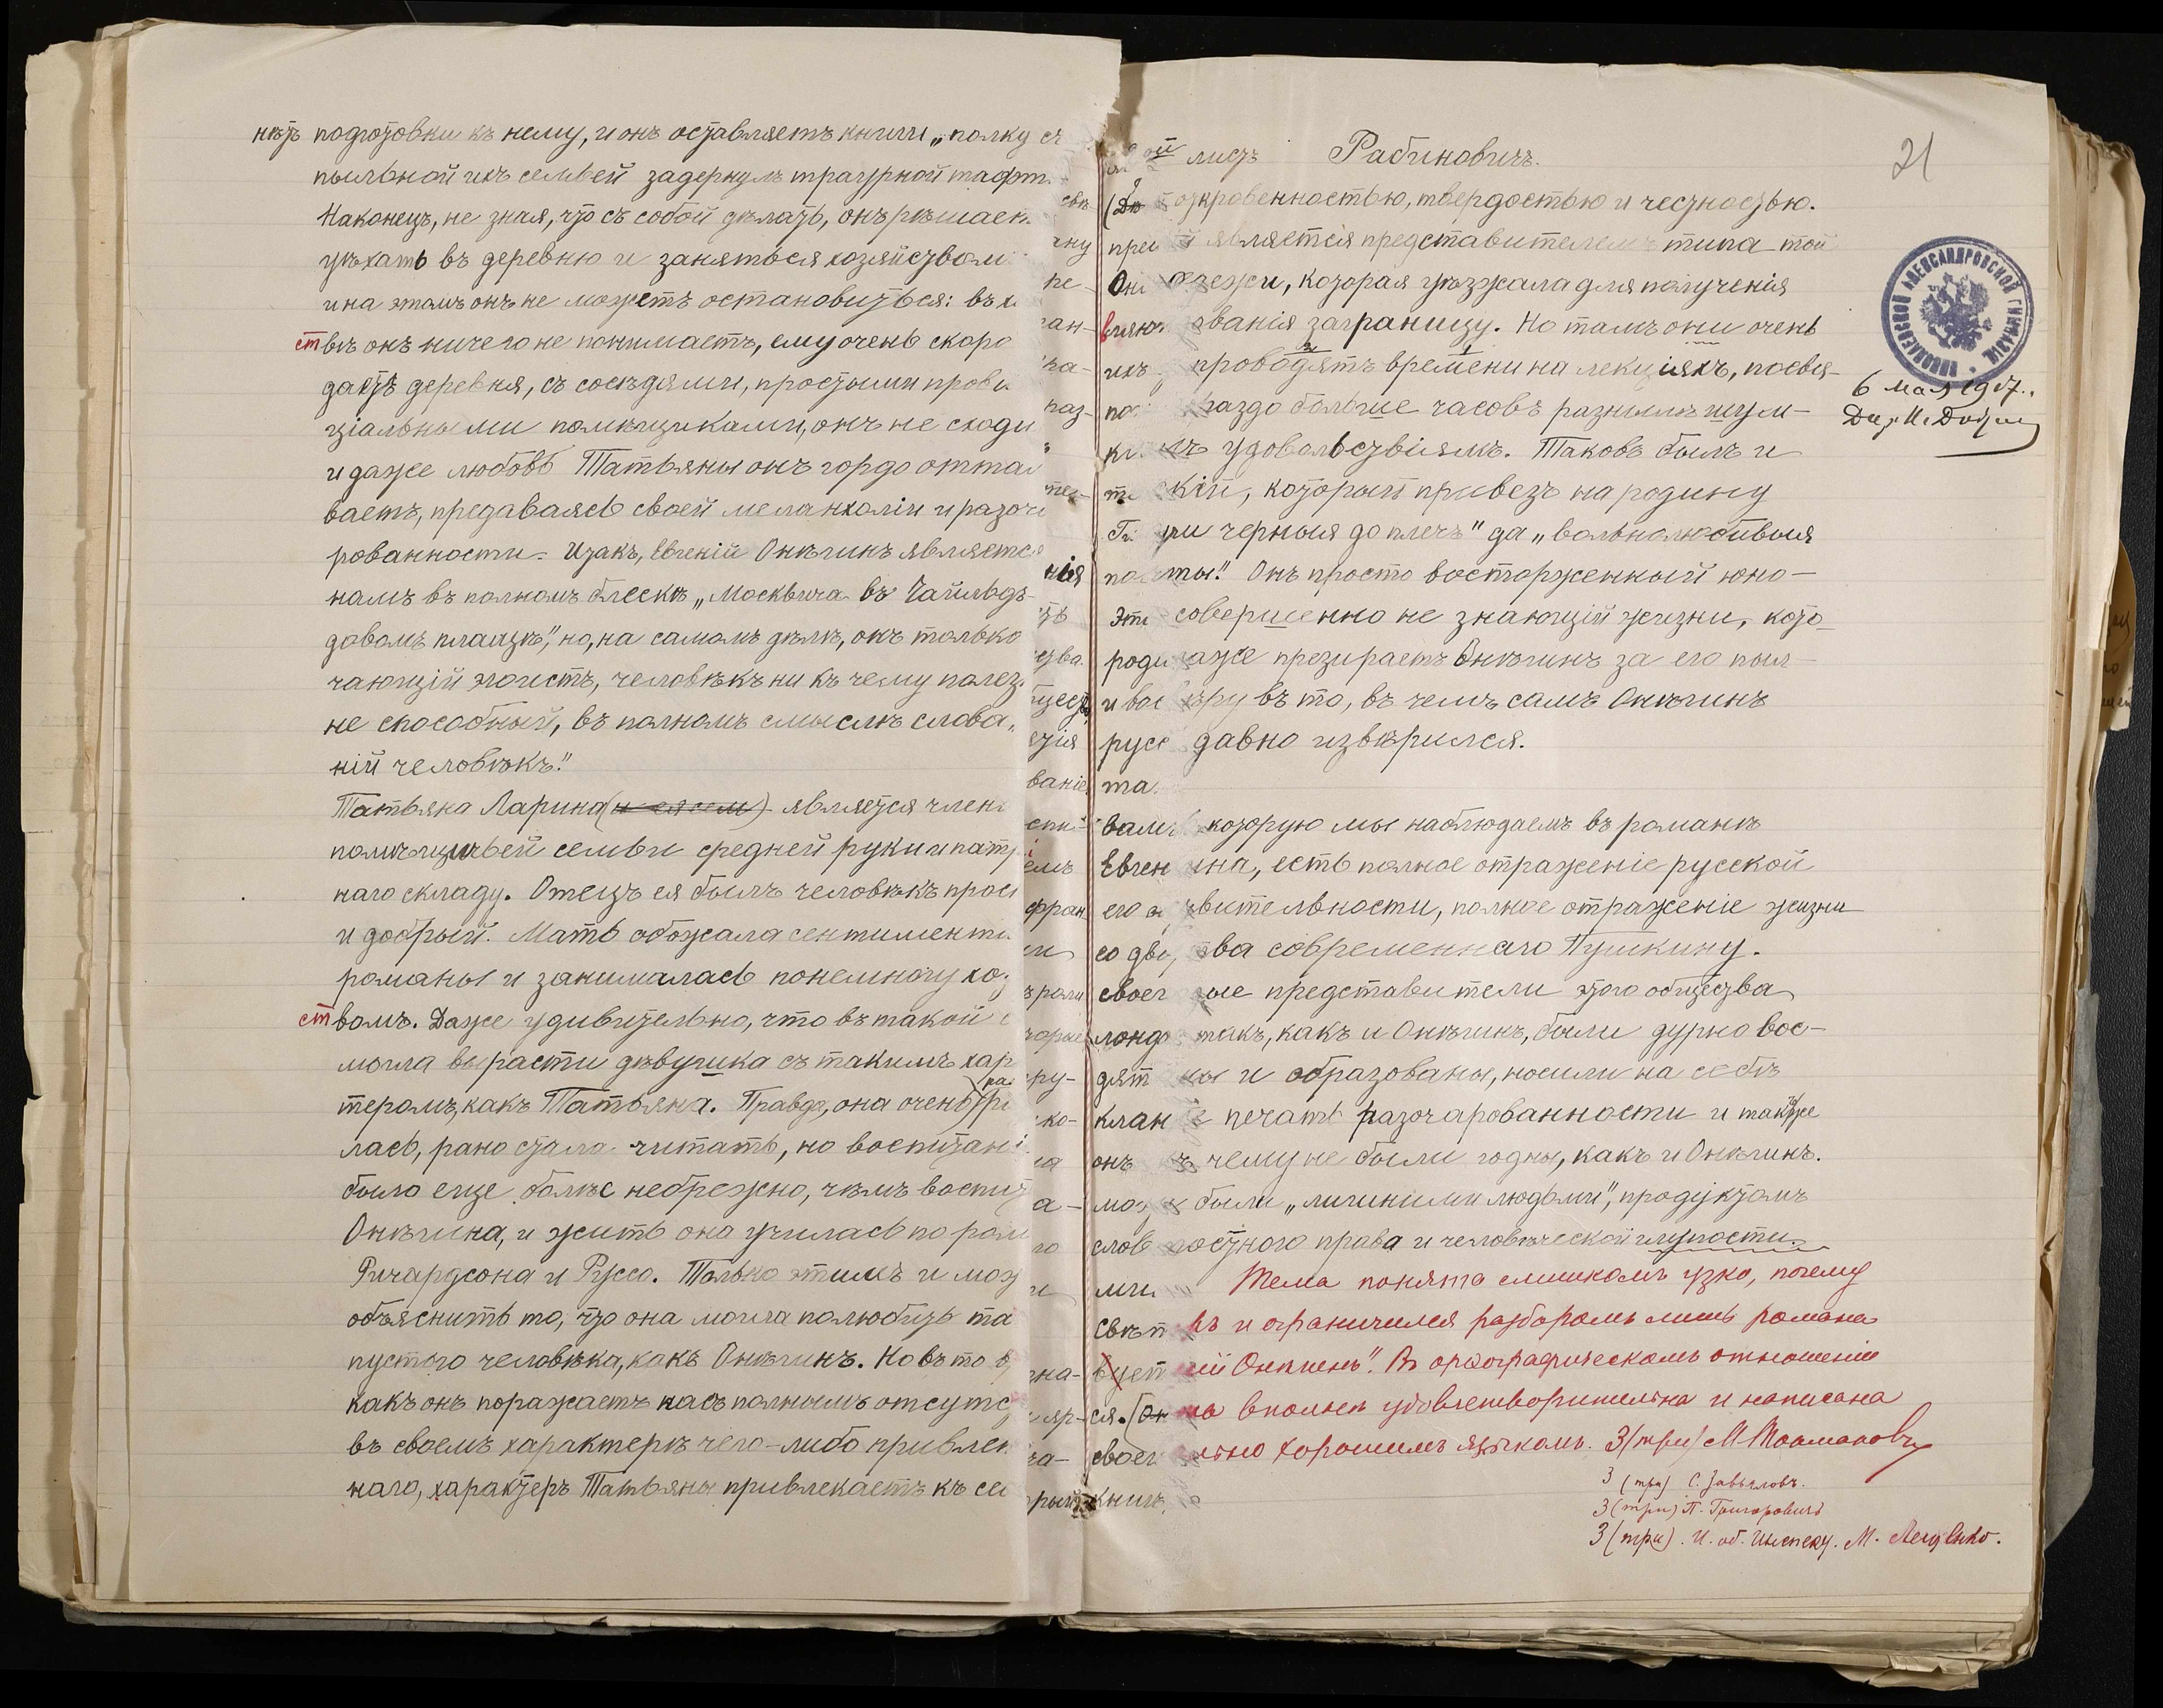 нѣтъ подготовки къ нему, и онъ оставляетъ книги, „полку съ
пыльной ихъ семьей задернулъ траурной тафт
Наконецъ, не зная, что съ собой дѣлать, онъ рѣшает
уѣхать въ деревню и заняться хозяйством
и на этомъ онъ не можетъ остановиться: въ х
ствѣ онъ ничего не понимаетъ, ему очень скоро
даетъ деревня, съ сосѣдями, простыми прови
ціальными помѣщиками, онъ не сходи
и даже любовь Татьяны онъ гордо оттал
ваетъ, предаваясь своей меланхоліи и разоча
рованности. Итакъ, Евгеній Онѣгинъ является
намъ въ полномъ блескѣ „Москвича въ Чайльдъ-
довомъ плащѣ", но, на самомъ дѣлѣ, онъ только
чающій эгоистъ, человѣкъ ни къ чему полез
не способный, въ полномъ смыслѣ слова „
ній человѣкъ".
Татьяна Ларина (и ея сем) является член
помѣщичьей семьи средней руки и патр
наго складу. Отецъ ея былъ человѣкъ прос
и добрый. Мать обожала сентимента
романы и занималась понемногу хо
ствомъ. Даже удивительно, что въ такой с
могла вырасти дѣвушка съ такимъ хар
теромъ, какъ Татьяна. Правда, она очень ра
лась, рано стала читать, но воспитані
было еще болѣе небрежно, чѣмъ воспит
Онѣгина, и жить она училась по ром
Ричардсона и Руссо. Только этимъ и мож
объяснить то, что она могла полюбить та
пустого человѣка, какъ Онѣгинъ. Но въ то в
какъ онъ поражаетъ насъ полнымъ отсутс
въ своемъ характерѣ чего-либо привлек
наго, характеръ Татьяны привлекаетъ къ себ
листъ Рабиновичъ.
21
откровенностью, твердостью и честностью.
является представителемъ типа той
одежи, которая уѣзжала для полученія
ованія заграницу. Но тамъ они очень
проводятъ времени на лекціяхъ, посвя-
раздо больше часовъ разнымъ шум-
мъ удовольствіямъ. Таковъ былъ и
скій, который привезъ на родину
ри черныя до плечъ" да „вольнолюбивыя
ты". Онъ просто восторженный юно-
совершенно не знающій жизни, кото-
даже презираетъ Онѣгинъ за его пыл-
ѣру въ то, въ чемъ самъ Онѣгинъ
давно извѣрился.
которую мы наблюдаемъ въ романѣ
ина, есть полное отраженіе русской
твительности, полное отраженіе жизни
ства современнаго Пушкину.
ые представители этого общества
такъ, какъ и Онѣгинъ, были дурно вос-
ны и образованы, носили на себѣ
печать разочарованности и также
къ чему не были годны, какъ и Онѣгинъ.
были „лишними людьми", продуктомъ
постного права и человѣческой глупости.
Тема понята слишкомъ узко, почему
ъ и ограничился разборомъ лишь романа
ій Онѣгинъ". Въ орѳографическомъ отношеніи
та вполнѣ удовлетворительна и написана
льно хорошимъ языкомъ. 3 (три)
3 (три) С. Завьяловъ.
3 (три) П. Григоровичъ
3 (три). И. об. Инспект. М. Лещенко.
НИКОЛАЕВСКОЙ АЛЕКСАНДРОВСКОЙ ГИМНАЗІИ
6 мая 1907.
Дир.